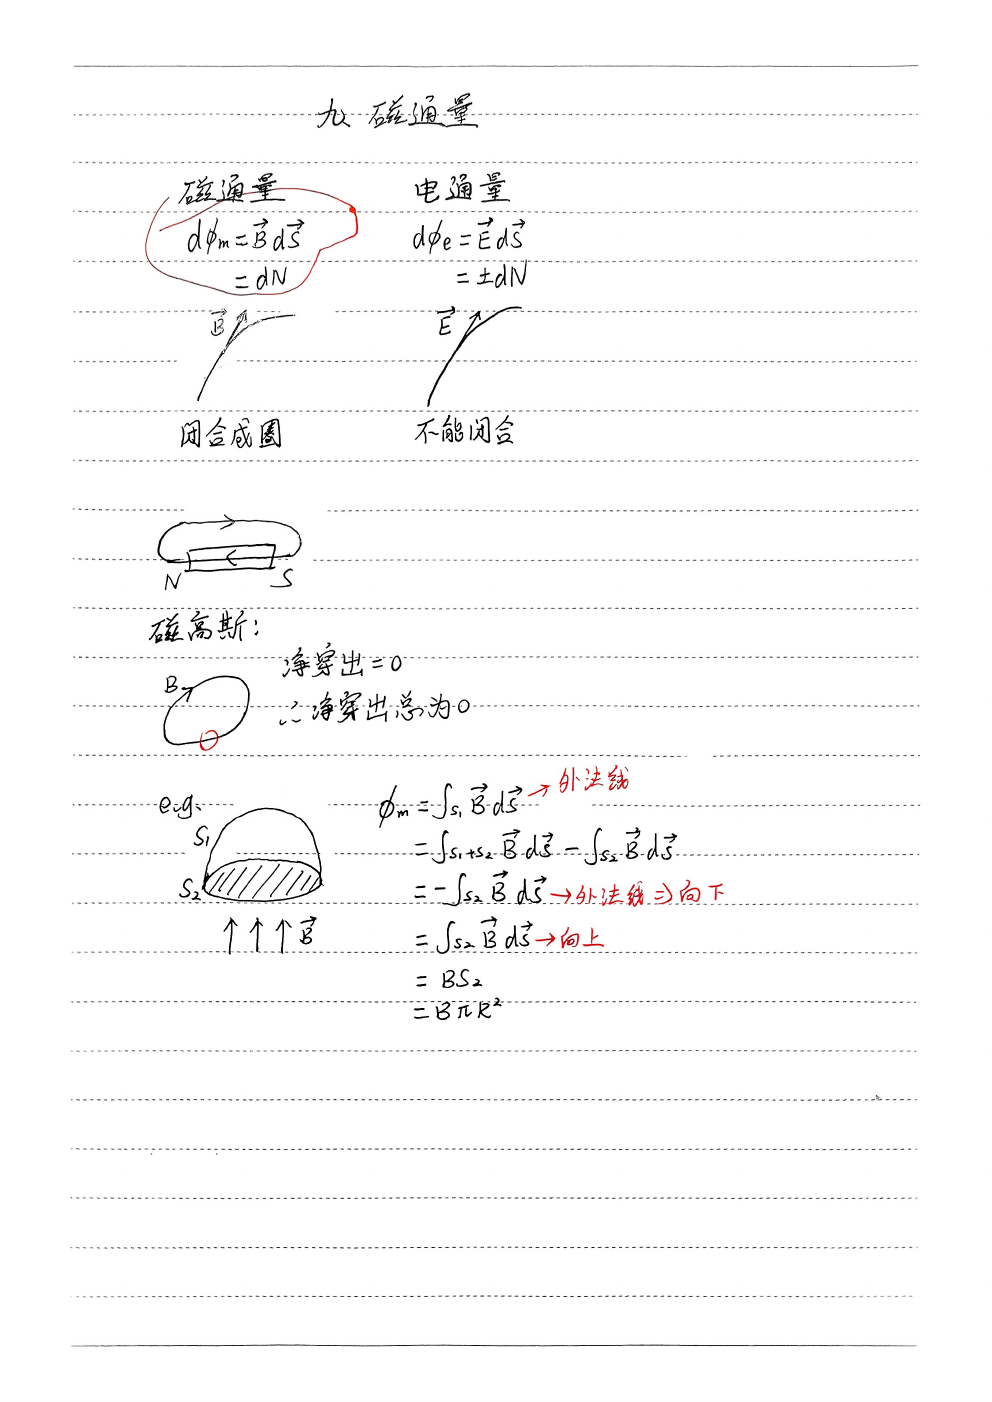 九、磁通量
磁通量 电通量
dφm = B⃗ dS⃗ dφe = E⃗ dS⃗
= dN = ±dN
B⃗ E⃗
闭合成圈 不能闭合
N S
磁高斯:
净穿出 = 0
B
∴ 净穿出总为0
e.g.
S1
S2
B⃗
φm = ∫S1 B⃗ dS⃗ → 外法线
= ∫S1+S2 B⃗ dS⃗ − ∫S2 B⃗ dS⃗
= −∫S2 B⃗ dS⃗ → 外法线 ⇒ 向下
= ∫S2 B⃗ dS⃗ → 向上
= BS2
= BπR²